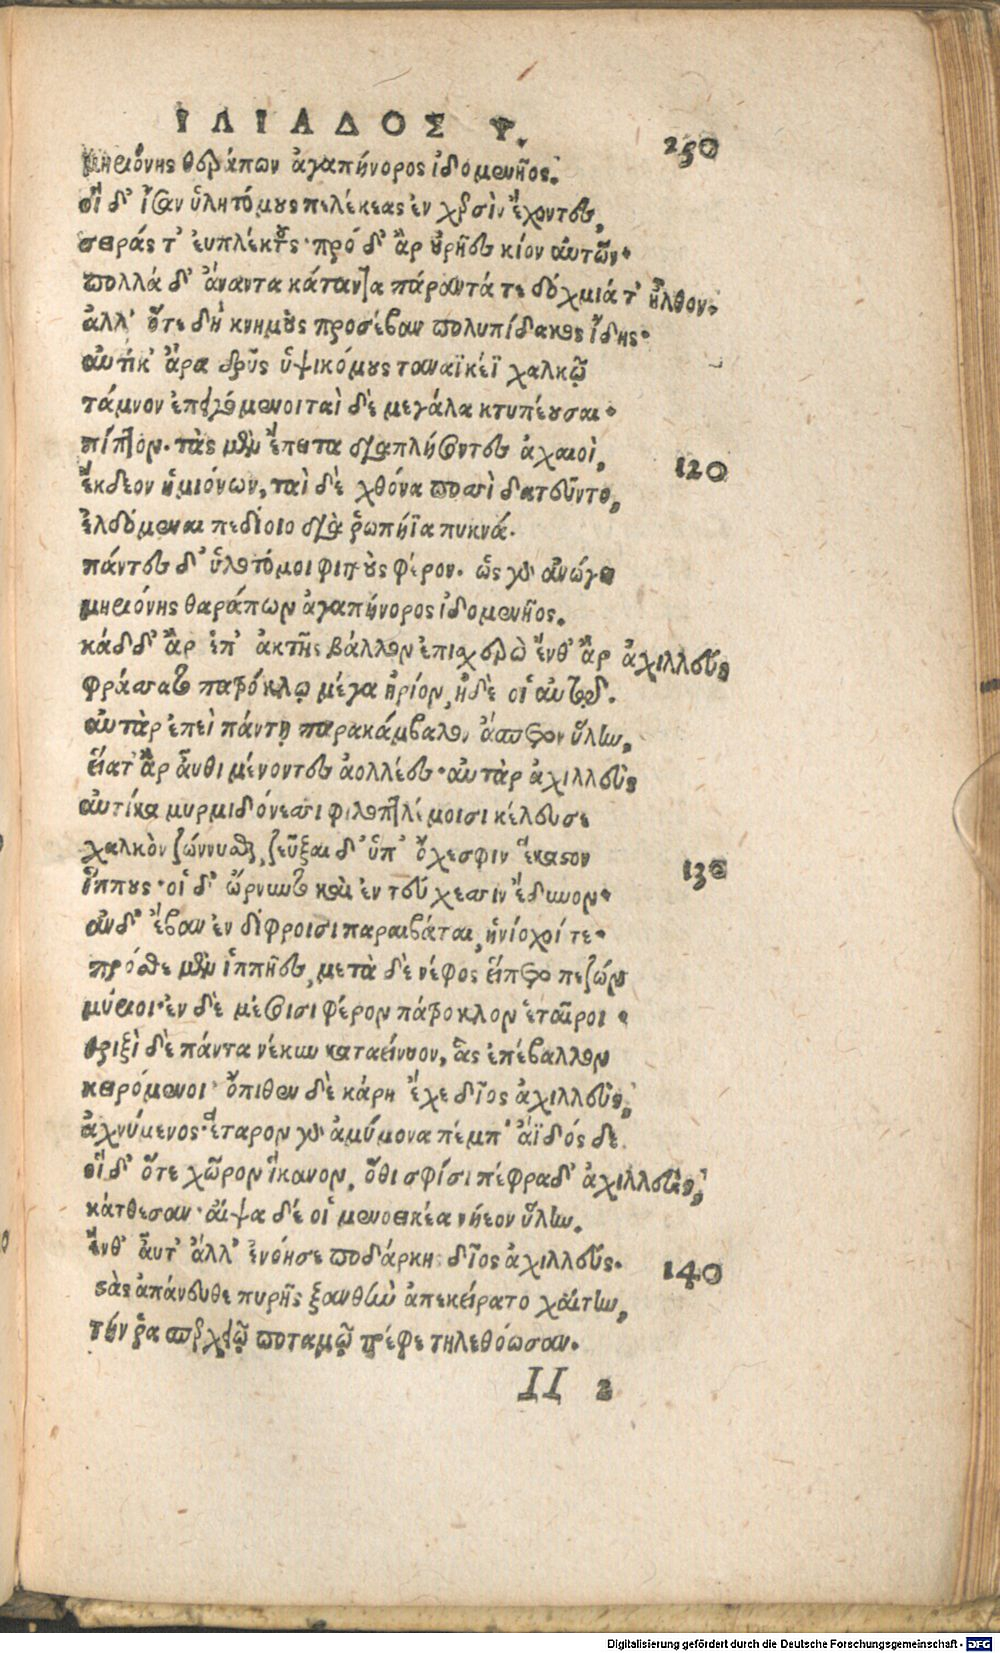 ΙΛΙΑΔΟΣ Ψ.
250
μηριόνης θεράπων ἀγαπήνορος ἰδομενῆος.
οἵ δ' ἴσαν ὑλητόμους πελέκεας ἐν χερσὶν ἔχοντες,
σειράς τ' ἐυπλέκτους· πρό δ' ἂρ οὐρῆες κίον αὐτῶν·
πολλά δ' ἄναντα κάταντα πάραντά τε δόχμιά τ' ἦλθον·
ἀλλ' ὅτε δὴ κνημοὺς προσέβαν πολυπίδακος ἴδης·
αὐτίκ' ἄρα δρῦς ὑψικόμους ταναϊκέϊ χαλκῷ
τάμνον ἐπειγόμενοι ταὶ δὲ μεγάλα κτυπέουσαι·
πίπτον. τὰς μὲν ἔπειτα διαπλήσσοντες ἀχαιοὶ,
120
ἔκδεον ἡμιόνων, ταὶ δὲ χθόνα ποσσὶ δατεῦντο,
ἐλδόμεναι πεδίοιο διὰ ῥωπήϊα πυκνά.
πάντες δ' ὑλοτόμοι φιτροὺς φέρον. ὣς γὰρ ἀνώγει
μηριόνης θεράπων ἀγαπήνορος ἰδομενῆος.
κάδδ' ἂρ ἐπ' ἀκτῆς βάλλον ἐπισχερὼ ἔνθ' ἂρ ἀχιλλεὺς
φράσσατο πατρόκλῳ μέγα ἠρίον, ἠδὲ οἷ αὐτῷ.
αὐτὰρ ἐπεὶ πάντῃ παρακάμβαλον ἄσπετον ὕλην,
εἵατ' ἂρ αὖθι μένοντες ἀολλέες· αὐτὰρ ἀχιλλεὺς
αὐτίκα μυρμιδόνεσσι φιλοπτλέμοισι κέλευσε
χαλκὸν ζώννυσθαι, ζεῦξαι δ' ὑπ' ὄχεσφιν ἕκαστον
130
ἵππους· οἱ δ' ὤρνυντο καὶ ἐν τεύχεσσιν ἔδυνον·
ἀνδ' ἔβαν ἐν δίφροισι παραιβάται, ἡνίοχοί τε·
πρόσθε μὲν ἱππῆες, μετὰ δὲ νέφος εἵπετο πεζῶν
μύριοι· ἐν δὲ μέσσισι φέρον πάτροκλον ἑταῖροι·
θριξὶ δὲ πάντα νέκυν καταείνυον, ἃς ἐπέβαλλον
κειρόμενοι· ὄπιθεν δὲ κάρη ἔχε δῖος ἀχιλλεὺς,
ἀχνύμενος· ἕταρον γὰρ ἀμύμονα πέμπ' ἀϊδός δε.
οἵ δ' ὅτε χῶρον ἵκανον, ὅθι σφίσι πέφραδ' ἀχιλλεὺς,
κάτθεσαν· αἶψα δέ οἱ μενοεικέα νήεον ὕλην.
ἔνθ' αὖτ' ἄλλ' ἐνόησε ποδάρκης δῖος ἀχιλλεύς.
140
στὰς ἀπάνευθε πυρῆς ξανθὴν ἀπεκείρατο χαίτην,
τήν ῥα σπερχειῷ ποταμῷ τρέφε τηλεθόωσαν.
II 2
Digitalisierung gefördert durch die Deutsche Forschungsgemeinschaft - DFG